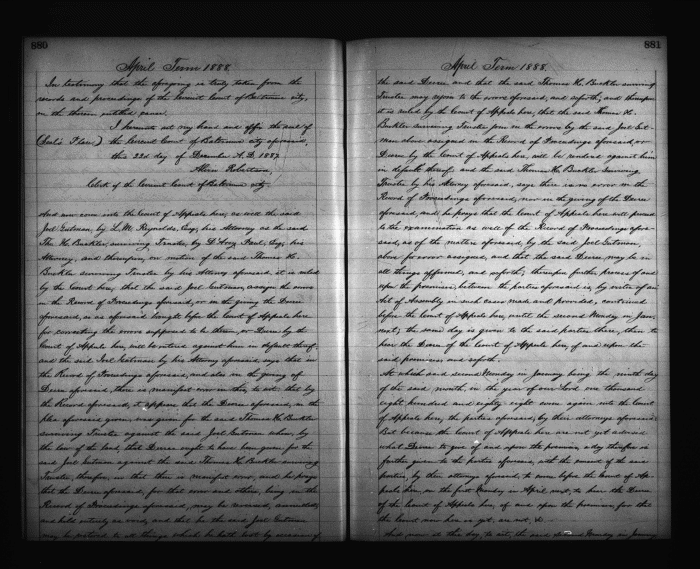 880
April Term 1888.
In testimony that the aforegoing is truly taken from the
records and proceedings of the Circuit Court of Baltimore city,
in the therein entitled cause,
I hereunto set my hand and affix the seal of
(Seal's Place) the Circuit Court of Baltimore city aforesaid,
this 22d day of December A.D. 1887.
Alvin Robertson,
Clerk of the Circuit Court of Baltimore city.
And now come into the Court of Appeals here, as well the said
Joel Gutman, by I. M. Reynolds, Esq; his Attorney as the said
Tho. H. Buckler, surviving Trustee, by D'Arcy Paul, Esq; his
Attorney, and thereupon, on motion of the said Thomas H.
Buckler surviving Trustee by his Attorney aforesaid, it is ruled
by the Court here, that the said Joel Gutman, assign the errors
in the Record of Proceedings aforesaid, or in the giving the Decree
aforesaid, so as aforesaid brought before the Court of Appeals here
for correcting the errors supposed to be therein, or Decree by the
Court of Appeals here, will be entered against him in default thereof,
and the said Joel Gutman by his Attorney aforesaid, says that in
the Record of Proceedings aforesaid, and also in the giving of
Decree aforesaid, there is manifest error in this, to wit: that by
the Record aforesaid, it appears that the Decree aforesaid, in the
plea aforesaid given, was given for the said Thomas H. Buckler
surviving Trustee against the said Joel Gutman when, by
the law of the land, that Decree ought to have been given for the
said Joel Gutman against the said Thomas H. Buckler surviving
Trustee, therefore, in that there is manifest error, and he prays
that the Decree aforesaid, for that error and others, being in the
Record of Proceedings aforesaid, may be reversed, annulled,
and held entirely as void, and that he the said Joel Gutman
may be restored to all things which he hath lost by occasion of
881
April Term 1888.
the said Decree, and that the said Thomas H. Buckler surviving
Trustee may rejoin to the errors aforesaid, and so forth; and thereupon
it is ruled by the Court of Appeals here, that the said Thomas H.
Buckler surviving Trustee join in the errors by the said Joel Gut-
man above assigned in the Record of Proceedings aforesaid, or
Decree by the Court of Appeals here, will be rendered against him
in default thereof; and the said Thomas H. Buckler surviving
Trustee by his Attorney aforesaid, says there is no error in the
Record of Proceedings aforesaid, nor in the giving of the Decree
aforesaid, and he prays that the Court of Appeals here will proceed
to the examination as well of the Record of Proceedings afore-
said, as of the matters aforesaid, by the said Joel Gutman,
above for error assigned, and that the said Decree may be in
all things affirmed, and so forth; thereupon further process of and
upon the premises, between the parties aforesaid is, by virtue of an
Act of Assembly in such cases made and provided, continued
before the Court of Appeals here, until the second Monday in Jan.
next; the same day is given to the said parties there, then to
hear the Decree of the Court of Appeals here, of and upon the
said premises and so forth.
At which said second Monday in January being the ninth day
of the said month, in the year of our Lord one thousand
eight hundred and eighty eight come again into the Court
of Appeals here, the parties aforesaid, by their attorneys aforesaid.
But because the Court of Appeals here are not yet advised
what Decree to give of and upon the premises, a day therefore is
further given to the parties aforesaid, with the consent of the said
parties, by their attorneys aforesaid, to come before the Court of Ap-
peals here, on the first Monday in April next, to hear the Decree
of the Court of Appeals here, of and upon the premises, for that
the Court now here is yet, are not, &c.
And now at this day, to wit, the said second Monday in January